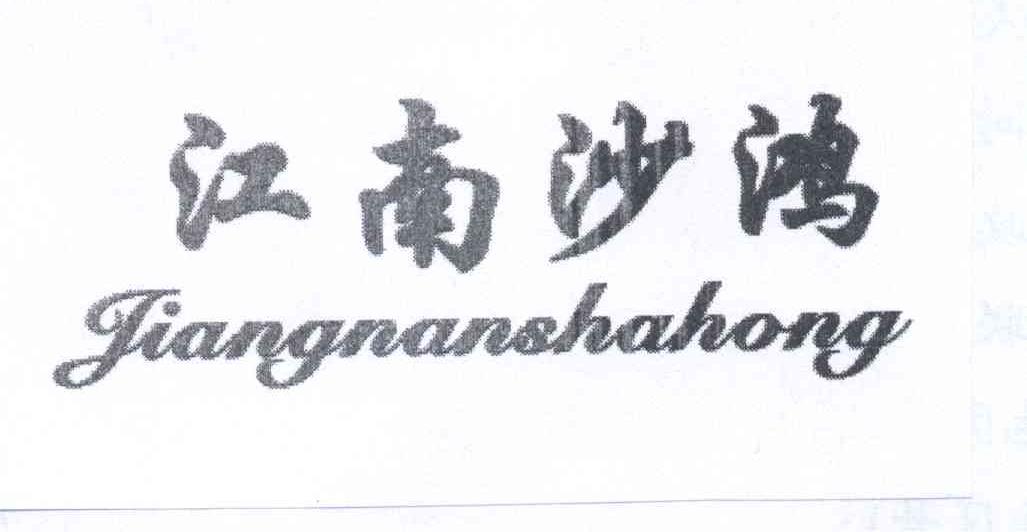 江南沙鸿
Jiangnanshahong